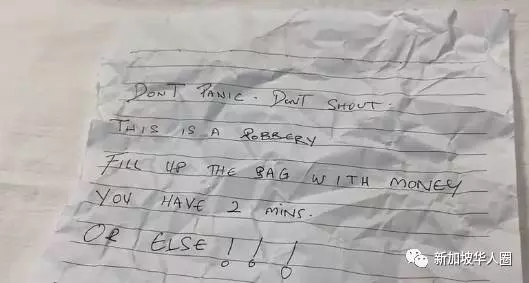 DONT PANIC. DONT SHOUT.
THIS IS A ROBBERY
FILL UP THE BAG WITH MONEY
YOU HAVE 2 MINS.
OR ELSE !!!
新加坡华人圈